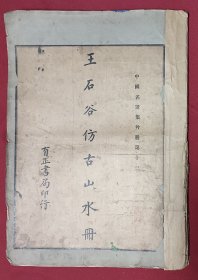 中國名畫集外冊第十
王石谷仿古山水冊
有正書局印行